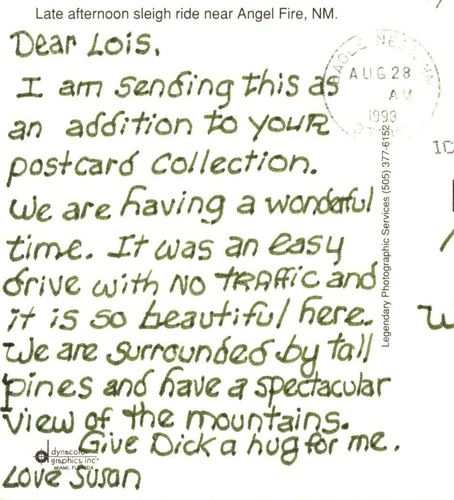 Late afternoon sleigh ride near Angel Fire, NM.
Dear Lois,
I am sending this as
an addition to YOUR
postcard collection.
We are having a wonderful
time. It was an easy
drive with NO TRAFFIC and
it is so beautiful here.
We are surrounded by tall
pines and have a spectacular
view of the mountains.
Give Dick a hug for me.
Love Susan
EAGLE NEST, NM
AUG 28
AM
1993
Legendary Photographic Services (505) 377-6152
dynacolor
graphics, inc.
MIAMI, FLORIDA